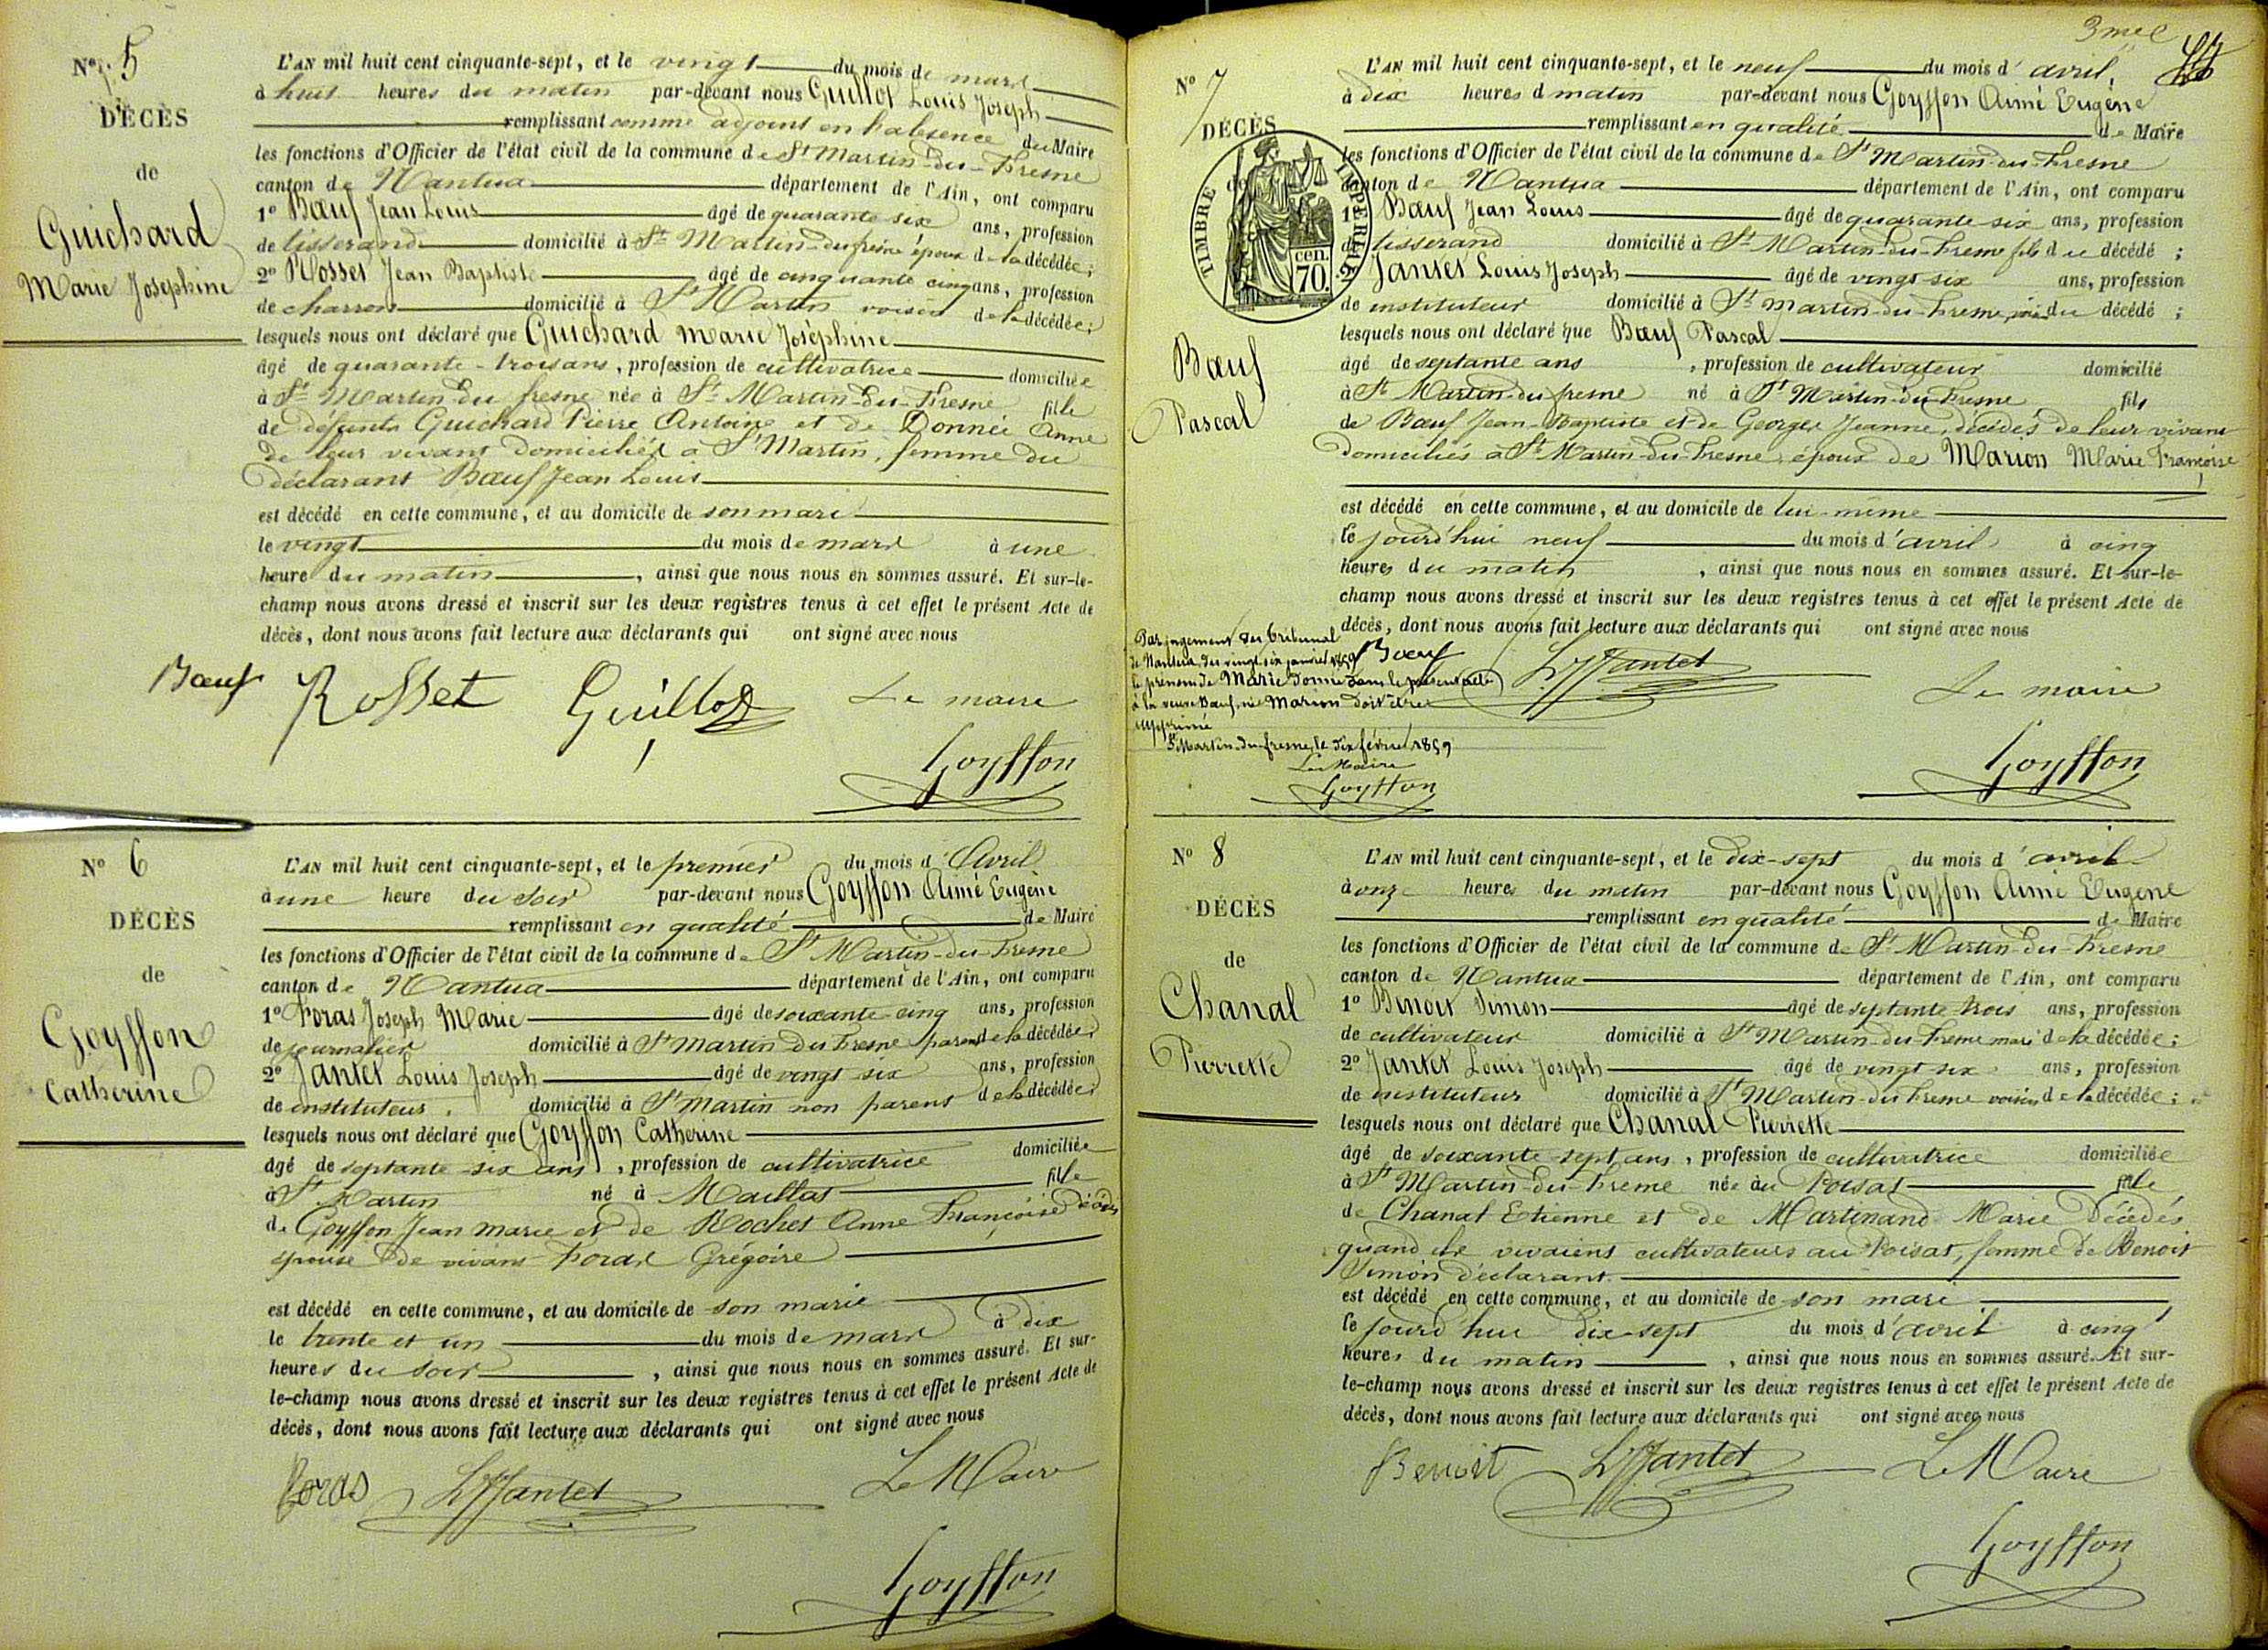 N° 5
DÉCÈS
de
Guichard
Marie Josephine
L'AN mil huit cent cinquante-sept, et le vingt du mois de mars
à huit heures du matin par-devant nous Guillot Louis Joseph
remplissant comme adjoint en l'absence du Maire
les fonctions d'Officier de l'état civil de la commune de St Martin-du-Fresne
canton de Nantua département de l'Ain, ont comparu
1° Bœuf Jean Louis âgé de quarante six ans, profession
de tisserand domicilié à St Martin-du-fresne époux de la décédée;
2° Rosset Jean Baptiste âgé de cinquante cinq ans, profession
de charron domicilié à St Martin voisin de la décédée;
lesquels nous ont déclaré que Guichard Marie Joséphine
âgé de quarante-trois ans, profession de cultivatrice domiciliée
à St Martin-du fresne née à St Martin-du-Fresne fille
de défunts Guichard Pierre Antoine et de Donnée Anne
de leur vivant domiciliés à St Martin, femme du
déclarant Bœuf Jean Louis
est décédé en cette commune, et au domicile de son mari
le vingt du mois de mars à une
heure du matin, ainsi que nous nous en sommes assuré. Et sur-le-
champ nous avons dressé et inscrit sur les deux registres tenus à cet effet le présent Acte de
décès, dont nous avons fait lecture aux déclarants qui ont signé avec nous
Bœuf Rosset Guillot Le maire
Goyffon
N° 6
DÉCÈS
de
Goyffon
Catherine
L'AN mil huit cent cinquante-sept, et le premier du mois d'Avril
à une heure du soir par-devant nous Goyffon Aimé Eugène
remplissant en qualité de Maire
les fonctions d'Officier de l'état civil de la commune de St Martin-du-Fresne
canton de Nantua département de l'Ain, ont comparu
1° Foras Joseph Marie âgé de soixante-cinq ans, profession
de journalier domicilié à St Martin du Fresne parent de la décédée;
2° Jantet Louis Joseph âgé de vingt six ans, profession
de instituteur. domicilié à St Martin non parent de la décédée;
lesquels nous ont déclaré que Goyffon Catherine
âgé de septante-six ans, profession de cultivatrice domiciliée
à St Martin né à Maillat fille
de Goyffon Jean Marie et de Rochet Anne Françoise décédés
épouse de vivant Foras Grégoire
est décédé en cette commune, et au domicile de son marie
le trente et un du mois de mars à dix
heures du soir, ainsi que nous nous en sommes assuré. Et sur-
le-champ nous avons dressé et inscrit sur les deux registres tenus à cet effet le présent Acte de
décès, dont nous avons fait lecture aux déclarants qui ont signé avec nous
Foras LJJantet Le Maire
Goyffon
3me
N° 7
DÉCÈS
de
TIMBRE IMPERIAL
cen.
70.
Bœuf
Pascal
L'AN mil huit cent cinquante-sept, et le neuf du mois d'avril,
à dix heures d matin par-devant nous Goyffon Aimé Eugène
remplissant en qualité de Maire
les fonctions d'Officier de l'état civil de la commune de St Martin-du-Fresne
canton de Nantua département de l'Ain, ont comparu
1° Bœuf Jean Louis âgé de quarante six ans, profession
de tisserand domicilié à St Martin-du-Fresne fils du décédé;
2° Jantet Louis Joseph âgé de vingt six ans, profession
de instituteur domicilié à St Martin-du-Fresne, voisin du décédé;
lesquels nous ont déclaré que Bœuf Pascal
âgé de septante ans, profession de cultivateur domicilié
à St Martin-du fresne né à St Martin-du-Fresne fils
de Bœuf Jean-Baptiste et de Georges Jeanne, décédés de leur vivant
domiciliés à St Martin-du-Fresne, époux de Marion Marie Françoise
est décédé en cette commune, et au domicile de lui-même
le jourd'hui neuf du mois d'avril à cinq
heures du matin, ainsi que nous nous en sommes assuré. Et sur-le-
champ nous avons dressé et inscrit sur les deux registres tenus à cet effet le présent Acte de
décès, dont nous avons fait lecture aux déclarants qui ont signé avec nous
Bœuf LJJantet Le maire
Goyffon
Par jugement du tribunal
de Nantua, du vingt-six janvier 1859
le prénom de Marie donné dans le présent acte
à la veuve Bœuf, née Marion doit être
supprimé
St Martin-du-fresne, le dix février 1859
Le Maire
Goyffon
N° 8
DÉCÈS
de
Chanal
Pierrette
L'AN mil huit cent cinquante-sept, et le dix-sept du mois d'avril
à onze heures du matin par-devant nous Goyffon Aimé Eugène
remplissant en qualité de Maire
les fonctions d'Officier de l'état civil de la commune de St Martin-du-Fresne
canton de Nantua département de l'Ain, ont comparu
1° Benoit Simon âgé de septante trois ans, profession
de cultivateur domicilié à St Martin-du-Fresne mari de la décédée;
2° Jantet Louis Joseph âgé de vingt six ans, profession
de instituteur domicilié à St Martin-du Fresne voisin de la décédée;
lesquels nous ont déclaré que Chanal Pierrette
âgé de soixante-sept ans, profession de cultivatrice domiciliée
à St Martin-du-Fresne née au Poisat fille
de Chanal Etienne et de Martinand Marie décédés
quand ils vivaient cultivateurs au Poisat, femme de Benoit
Simon déclarant.
est décédé en cette commune, et au domicile de son mari
le jourd'hui dix-sept du mois d'avril à cinq
heures du matin, ainsi que nous nous en sommes assuré. Et sur-
le-champ nous avons dressé et inscrit sur les deux registres tenus à cet effet le présent Acte de
décès, dont nous avons fait lecture aux déclarants qui ont signé avec nous
Benoit LJJantet Le Maire
Goyffon